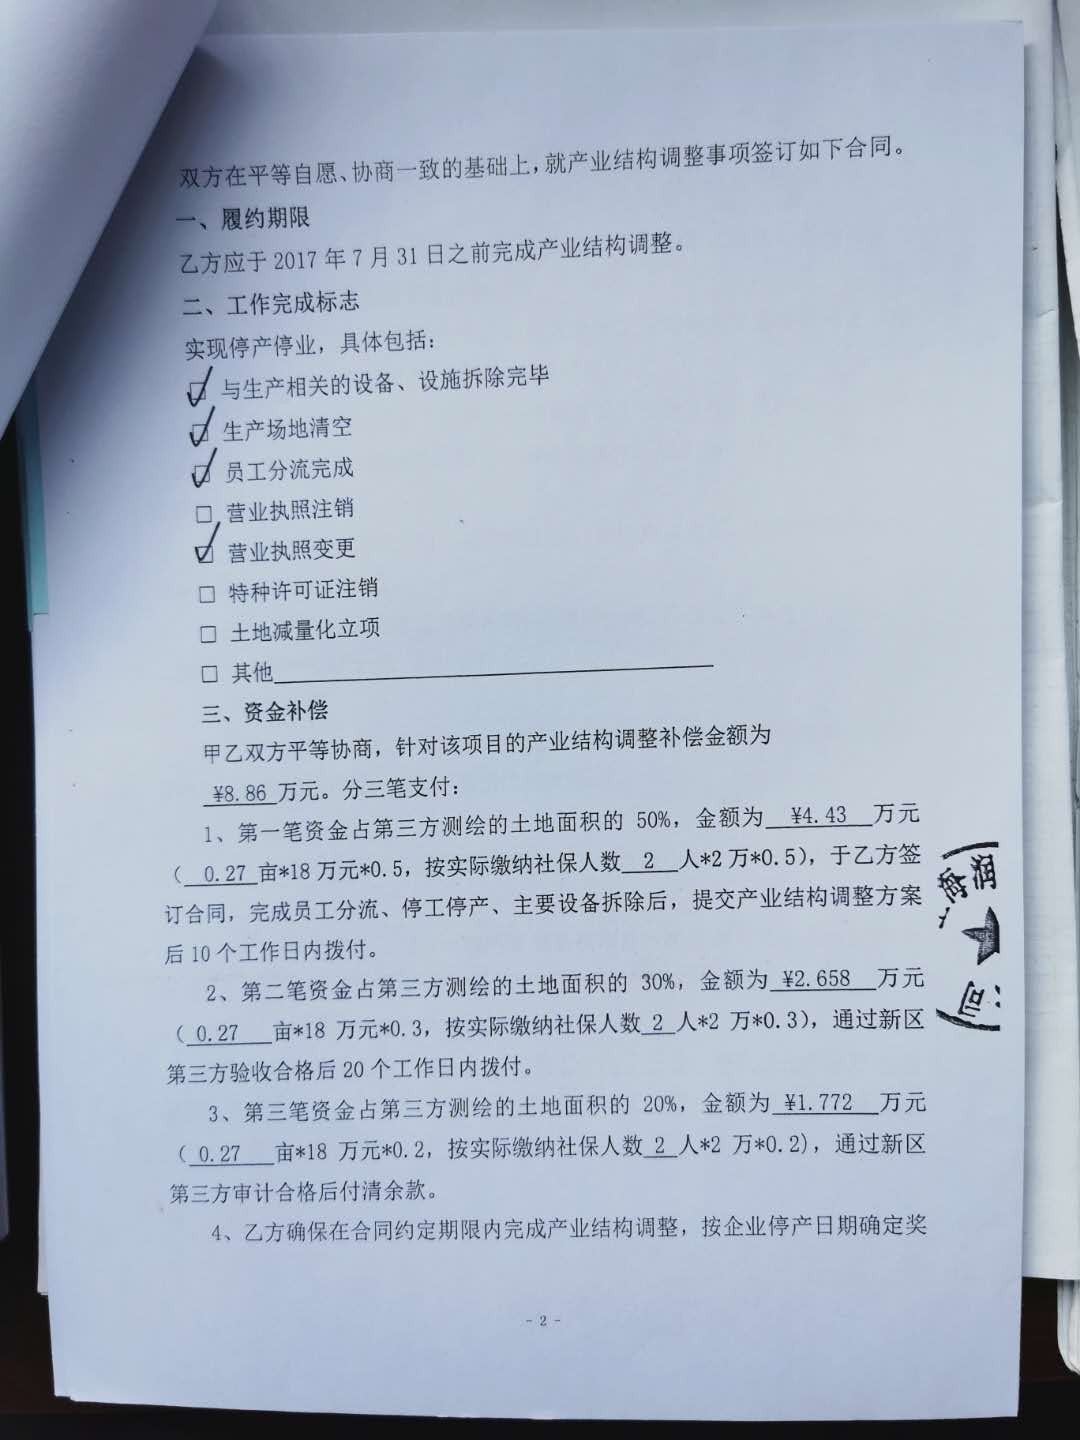 双方在平等自愿、协商一致的基础上，就产业结构调整事项签订如下合同。
一、履约期限
乙方应于 2017 年 7 月 31 日之前完成产业结构调整。
二、工作完成标志
实现停产停业，具体包括：
☑ 与生产相关的设备、设施拆除完毕
☑ 生产场地清空
☑ 员工分流完成
□ 营业执照注销
☑ 营业执照变更
□ 特种许可证注销
□ 土地减量化立项
□ 其他
三、资金补偿
甲乙双方平等协商，针对该项目的产业结构调整补偿金额为
¥8.86 万元。分三笔支付：
1、第一笔资金占第三方测绘的土地面积的 50%，金额为 ¥4.43 万元
（ 0.27 亩*18 万元*0.5，按实际缴纳社保人数 2 人*2 万*0.5），于乙方签
订合同，完成员工分流、停工停产、主要设备拆除后，提交产业结构调整方案
后 10 个工作日内拨付。
2、第二笔资金占第三方测绘的土地面积的 30%，金额为 ¥2.658 万元
（ 0.27 亩*18 万元*0.3，按实际缴纳社保人数 2 人*2 万*0.3），通过新区
第三方验收合格后 20 个工作日内拨付。
3、第三笔资金占第三方测绘的土地面积的 20%，金额为 ¥1.772 万元
（ 0.27 亩*18 万元*0.2，按实际缴纳社保人数 2 人*2 万*0.2），通过新区
第三方审计合格后付清余款。
4、乙方确保在合同约定期限内完成产业结构调整，按企业停产日期确定奖
海润
司
- 2 -